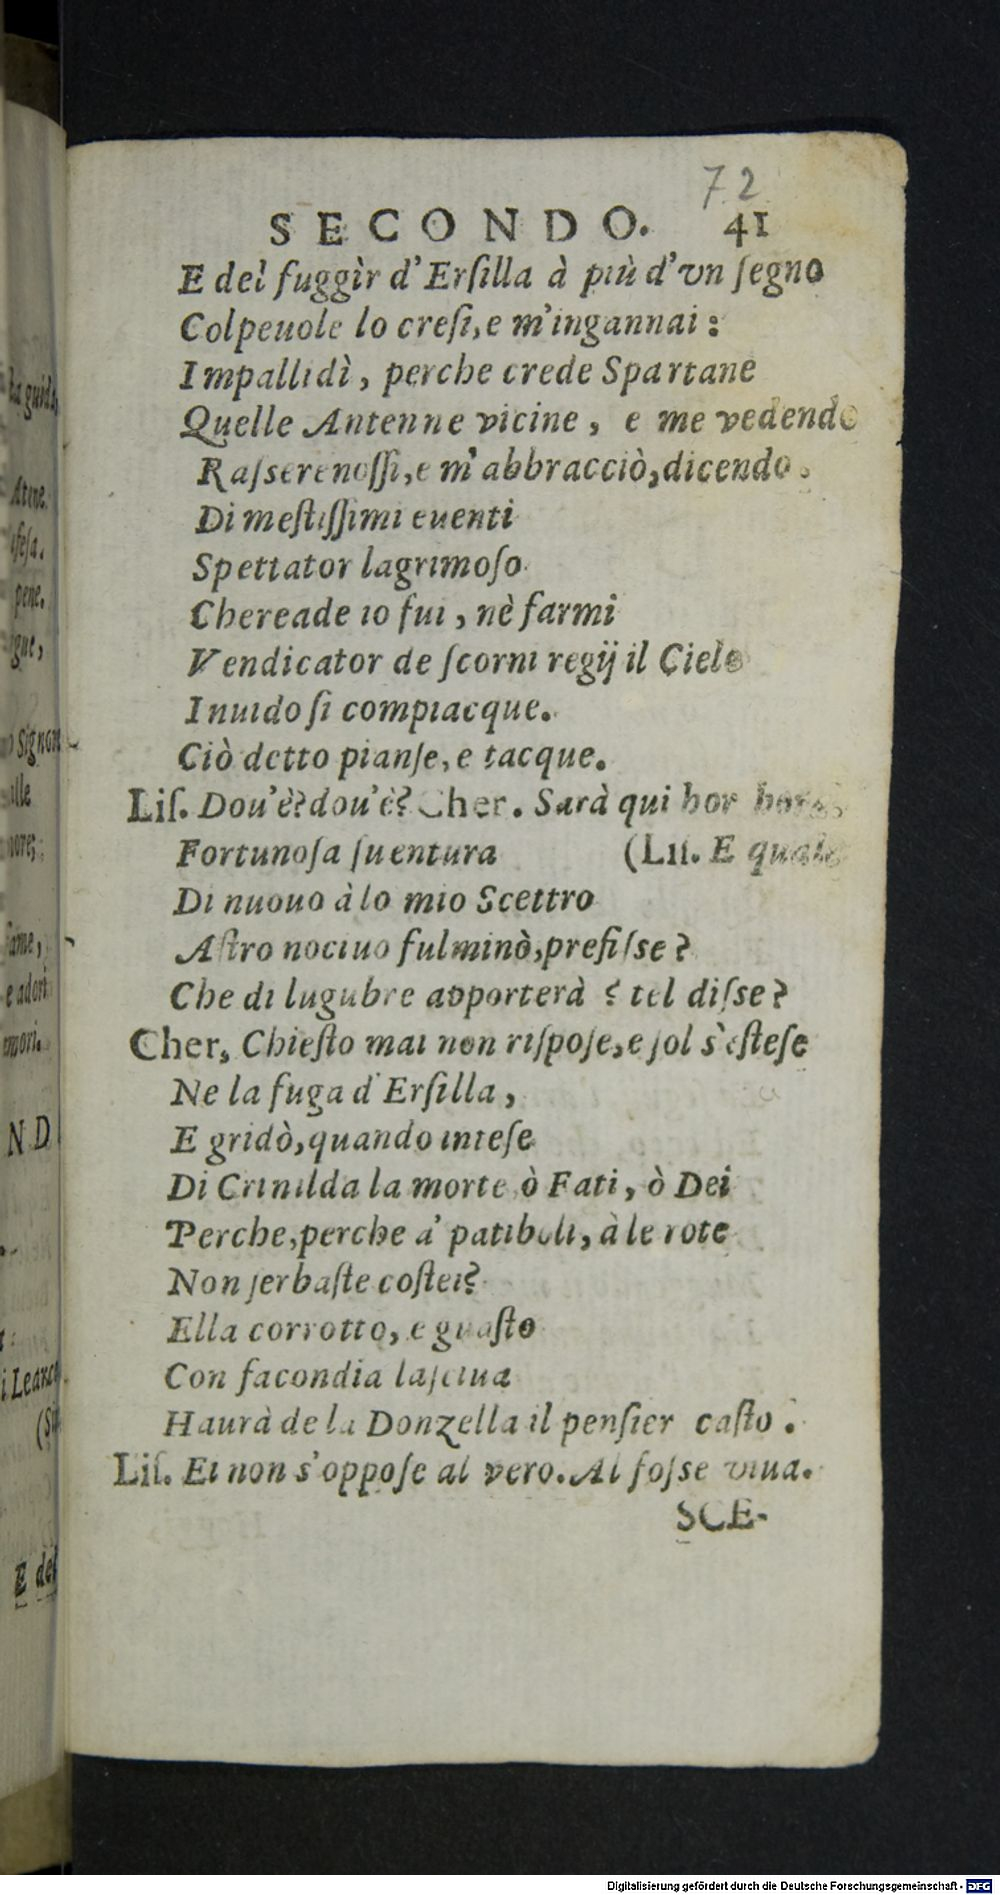 72
SECONDO. 41
E del fuggìr d'Erſilla à più d'vn ſegno
Colpeuole lo creſi, e m'ingannai:
Impallidì, perche crede Spartane
Quelle Antenne vicine, e me vedendo
Raſserenoſſi, e m'abbracciò, dicendo.
Di meſtiſſimi euenti
Spettator lagrimoſo
Chereade io fui, nè farmi
Vendicator de ſcorni regij il Cielo
Inuido ſi compiacque.
Ciò detto pianſe, e tacque.
Liſ. Dou'è? dou'è? Cher. Sarà qui hor hora.
Fortunoſa ſuentura (Liſ. E quale
Di nuouo à lo mio Scettro
Aſtro nociuo fulminò, prefiſse?
Che di lugubre apporterà? tel diſse?
Cher, Chieſto mai non riſpoſe, e ſol s'eſteſe
Ne la fuga d'Erſilla,
E gridò, quando inteſe
Di Crinilda la morte ò Fati, ò Dei
Perche, perche a' patiboli, à le rote
Non ſerbaſte coſtei?
Ella corrotto, e guaſto
Con facondia laſciua
Haurà de la Donzella il penſier caſto.
Liſ. Ei non s'oppoſe al vero. Al foſse viua.
SCE-
ta guida,
Atene.
ifeſa.
pene.
gue,
o Signor
ille
nore;
fame,
e adori
mori.
N D
i Learc
E del
Digitalisierung gefördert durch die Deutsche Forschungsgemeinschaft - DFG